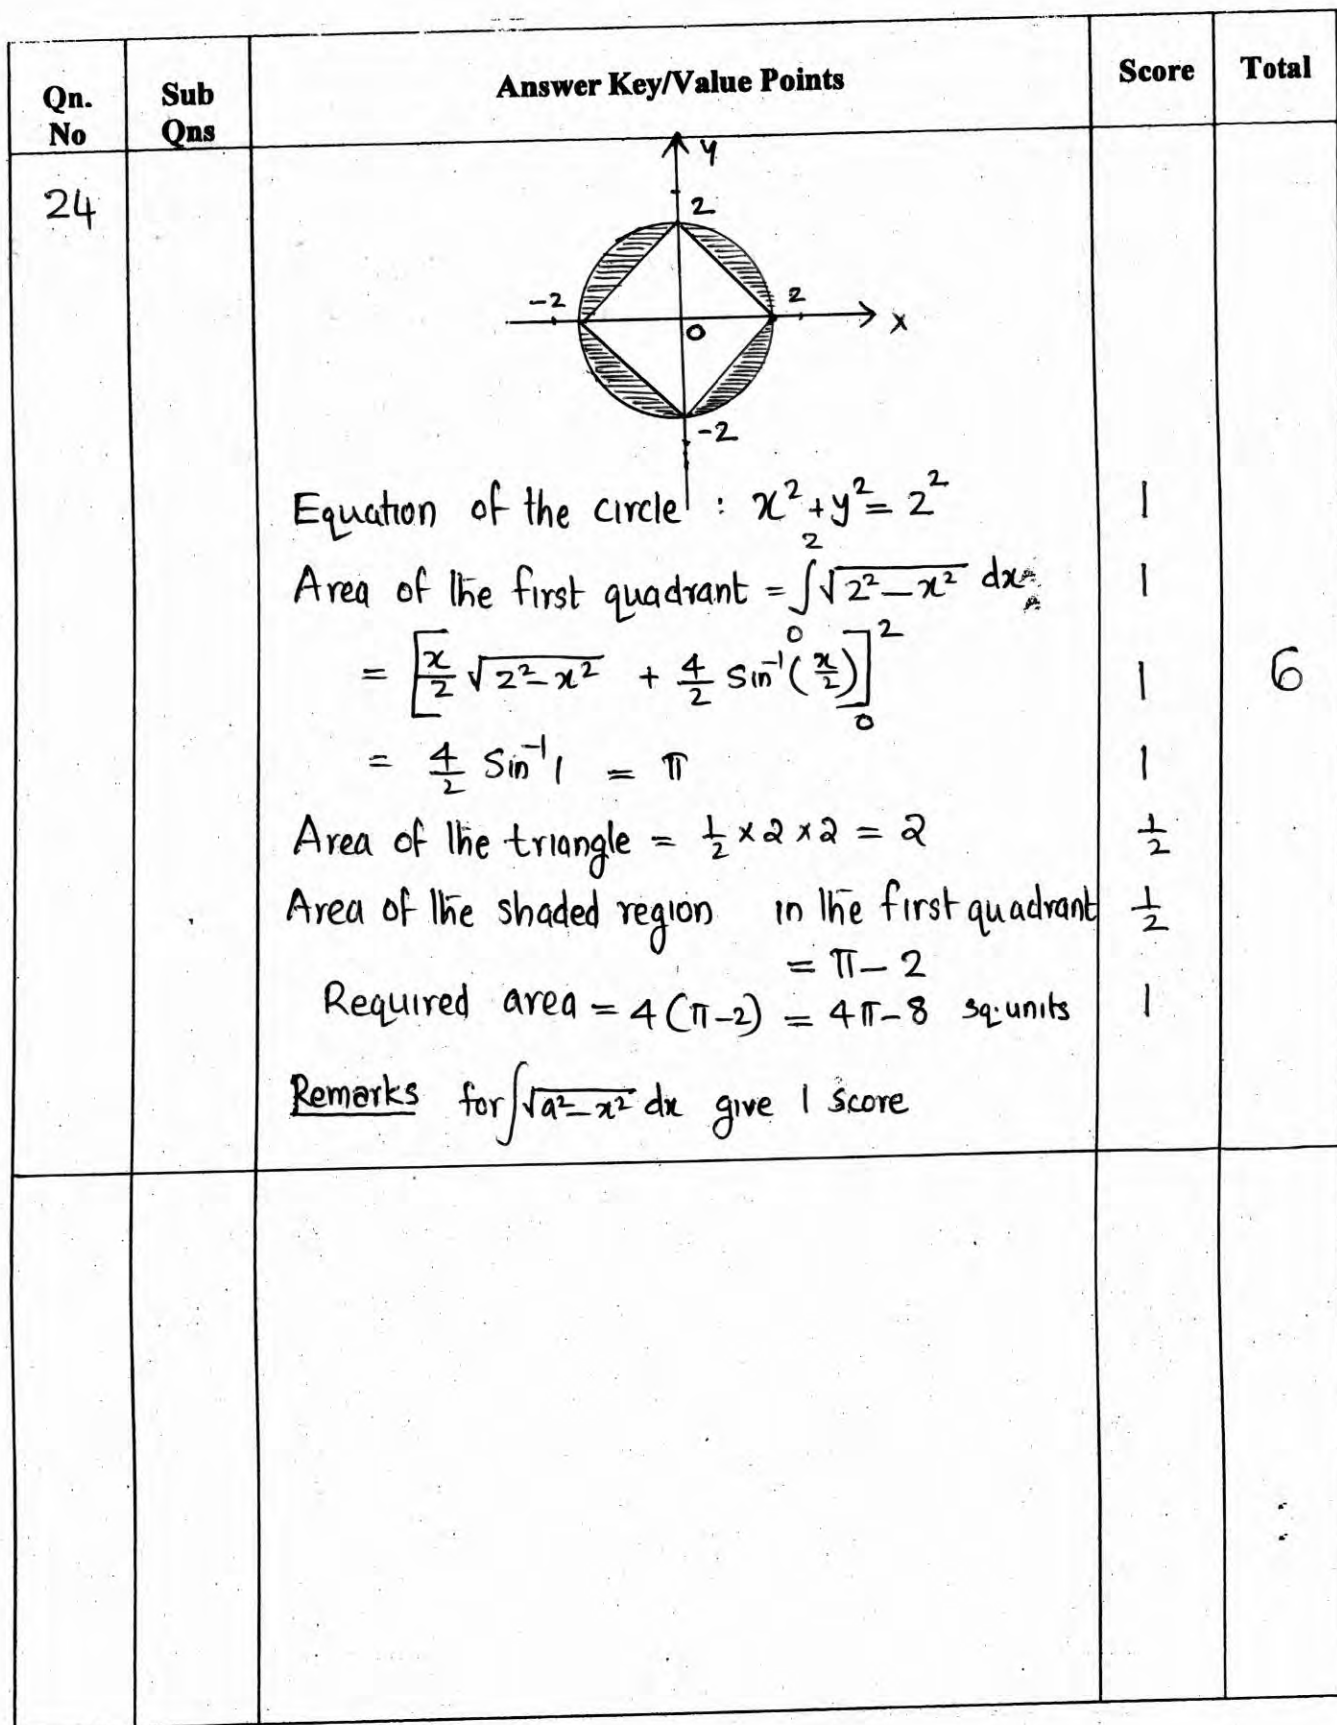 Qn. No
Sub Qns
Answer Key/Value Points
Score
Total
24
y
2
-2
2
0
x
-2
Equation of the circle : x² + y² = 2² 1
Area of the first quadrant = ∫₀² √(2² − x²) dx 1
= [x/2 √(2² − x²) + 4/2 Sin⁻¹(x/2)]₀² 1 6
= 4/2 Sin⁻¹1 = π 1
Area of the triangle = 1/2 × 2 × 2 = 2 1/2
Area of the shaded region in the first quadrant 1/2
= π − 2
Required area = 4(π−2) = 4π−8 sq.units 1
Remarks for ∫√(a² − x²) dx give 1 score